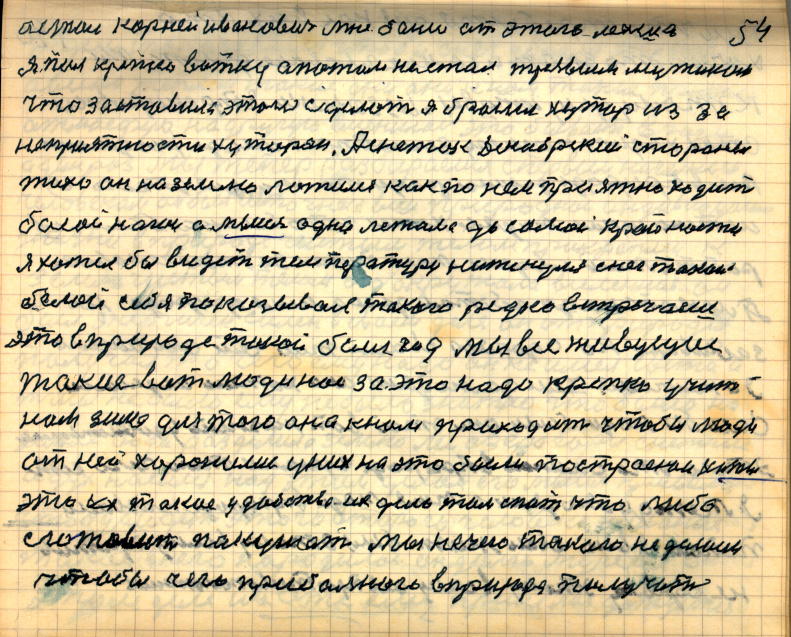 Корней иванович мне было от этого легко 54
я пил крепко вотку а потом не стал трезвым мужиком
что заставила этого сделот я бросил хутор из за
неприятности хуторян. Денеток Декабрский стороны
тихо он на землю ложился как по нем приятно ходит
босой ноги а мысля одна лежала до самой крайности
я хотел бы видеть температуру не минуля снег такой
белой себя показывал такого редко встречаем
это в природе такой был ход мы все живущие
такие вот люди нас за это надо крепко учить
нам зима для того она к нам приходит чтобы люди
от ней хоронилис у них на это были построеной хаты
это их такое удобство их дело там спат что либо
сготовит покушат мы нечего такого не делаем
чтобы чего прибольного в природе получать